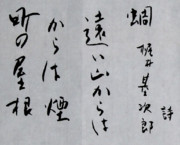 詩
梶井基次郎
蜩
遠い山からは
からは煙
町の屋根